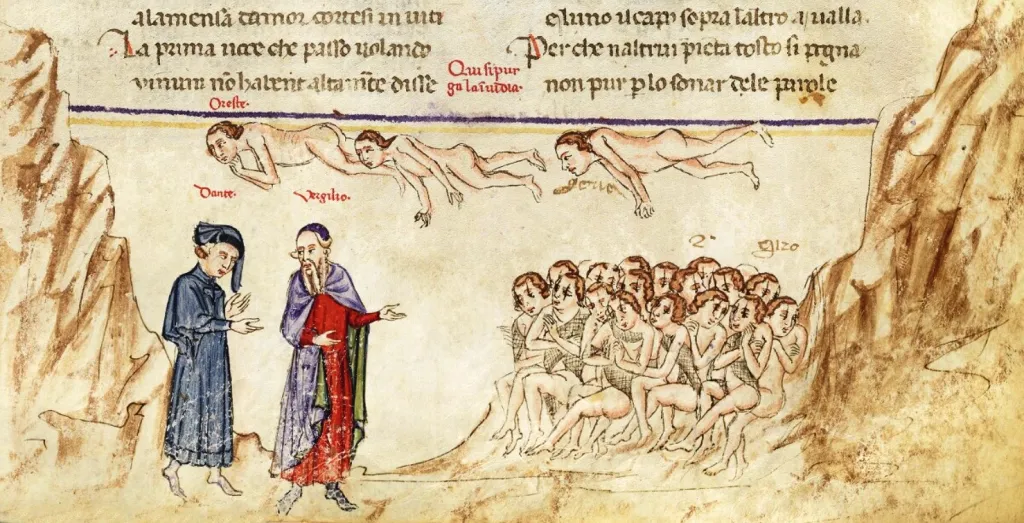 alamensa damor cortesi in uiti
La prima uoce che passo uolando
uinum nō habent altamēte disse
Qui si pur
ga la inuidia.
eluno il capo sopra laltro aualla.
Per che naltrui pieta tosto si pogna
non pur p lo sonar dele parole
Oreste.
Dante.
Vergilio.
2°